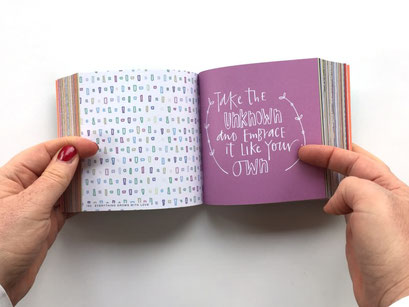 EVERYTHING GROWS WITH LOVE
TAKE THE
UNKNOWN
AND EMBRACE
IT LIKE YOUR
OWN